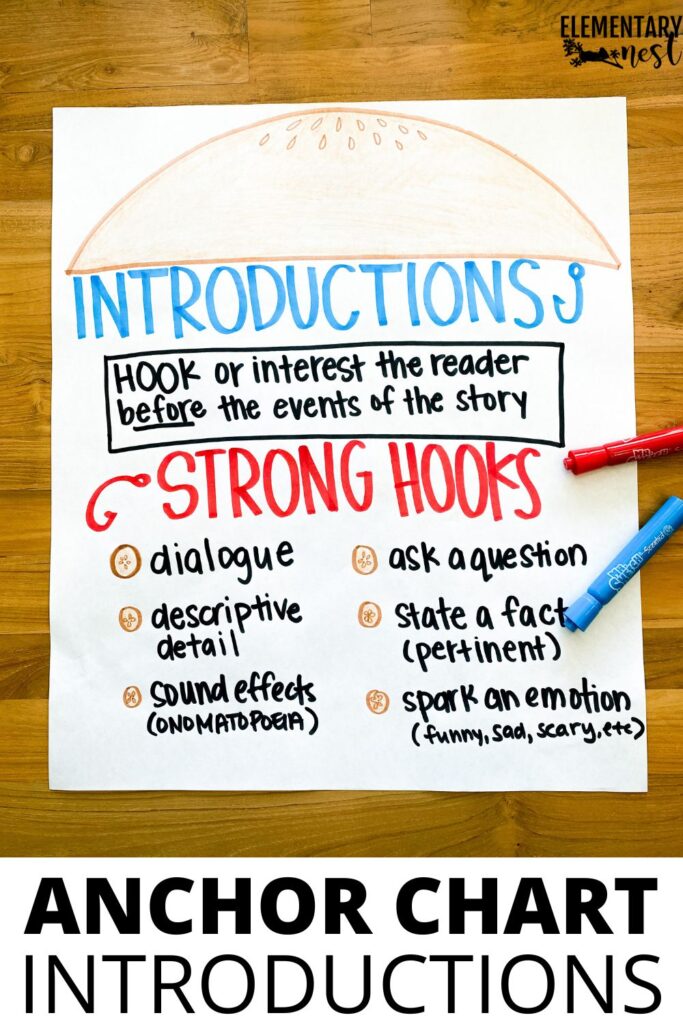 ELEMENTARY
nest
INTRODUCTIONS
HOOK or interest the reader
before the events of the story
STRONG HOOKS
dialogue
descriptive
detail
sound effects
(ONOMATOPOEIA)
ask a question
state a fact
(pertinent)
spark an emotion
(funny, sad, scary, etc)
Mr. Sketch Scented
ANCHOR CHART
INTRODUCTIONS